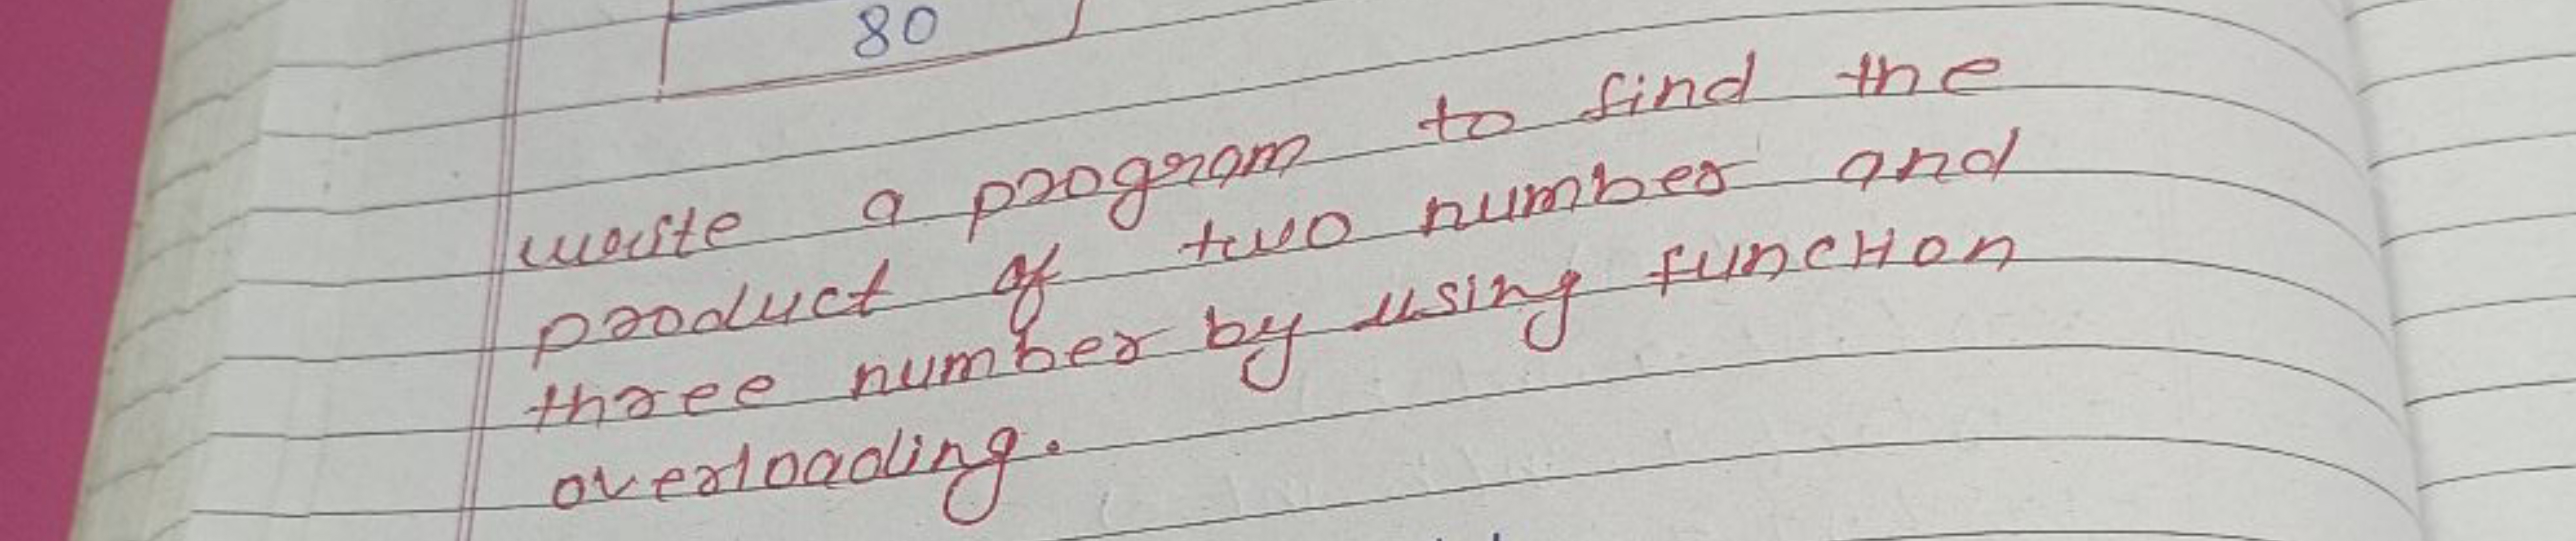 80
write a program to find the
product of two number and
three number by using function
overloading.